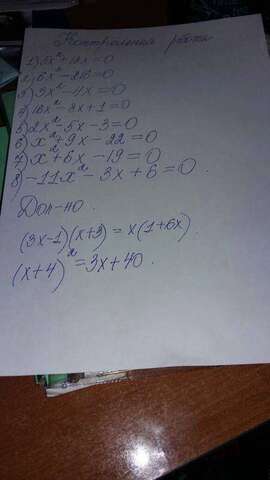 Контрольная работа
1) 5x²+12x=0
2) 6x²-216=0
3) 3x²-4x=0
4) 16x²-8x+1=0
5) 2x²-5x-3=0
6) x²+9x-22=0
7) x²+6x-19=0
8) -11x²-3x+6=0.
Доп-но.
(3x-1)(x+3)=x(1+6x).
(x+4)²=3x+40.